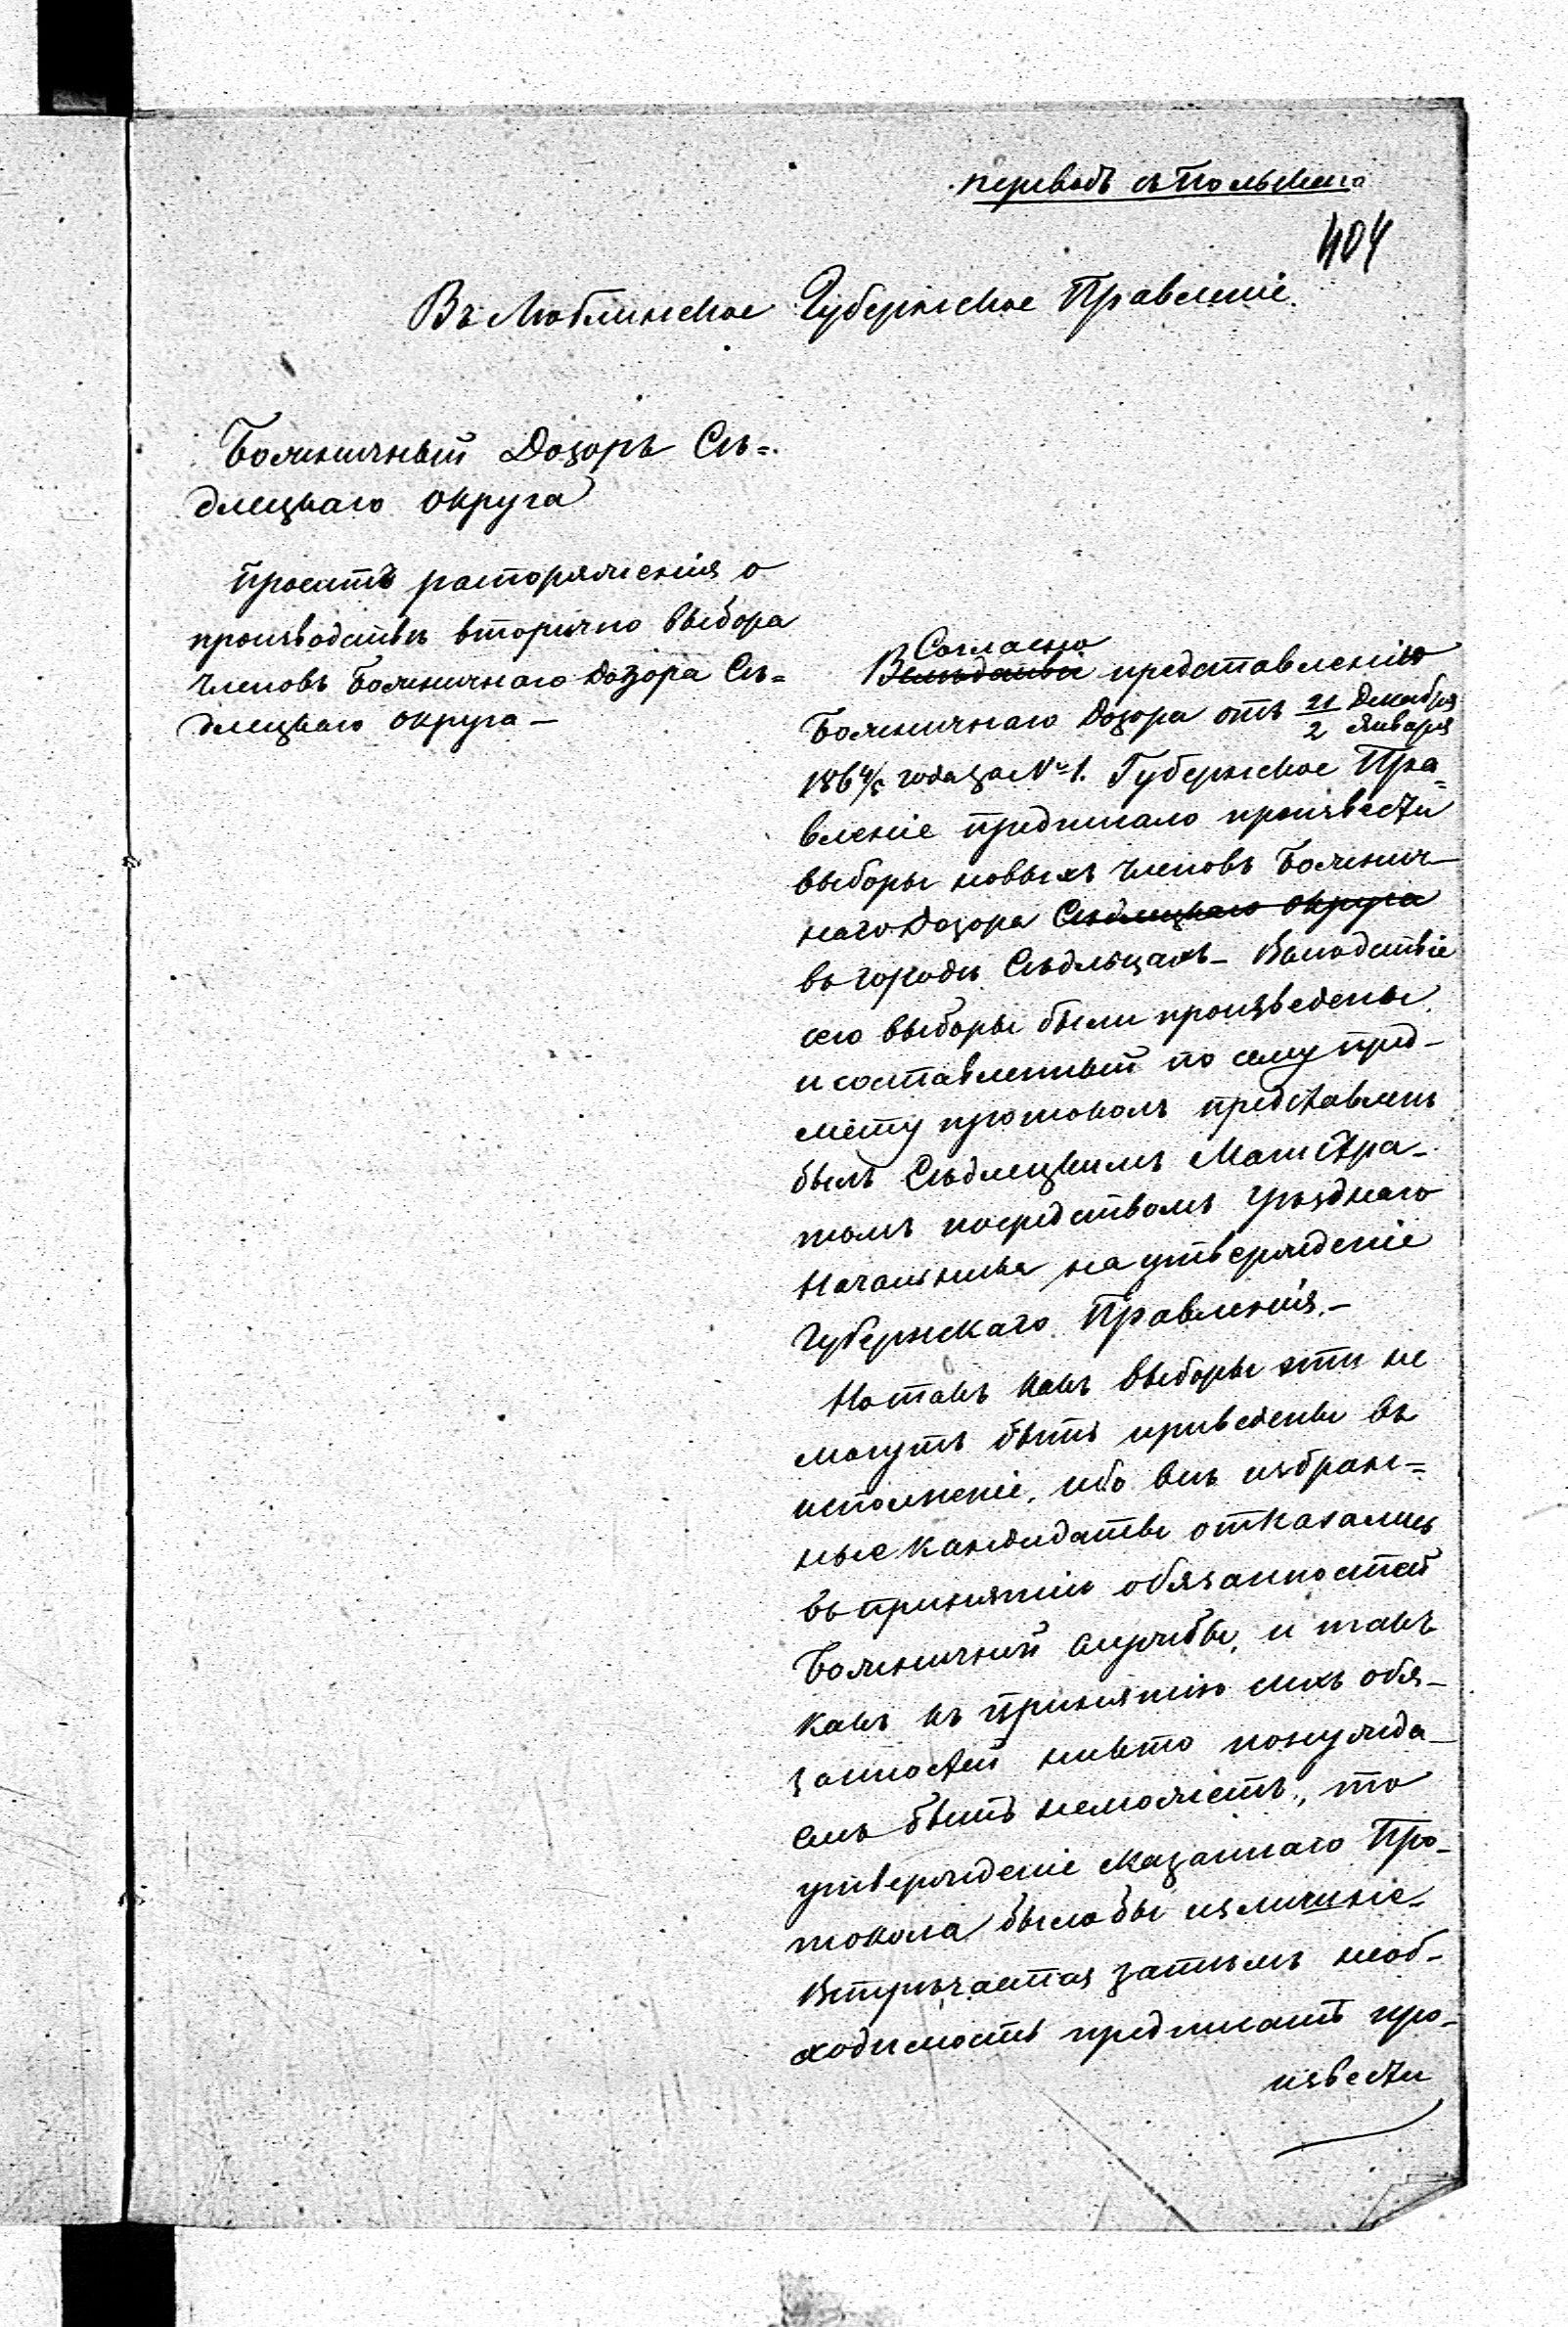 переводъ съ Польскаго
404
Въ Люблинское Губернское Правленіе.
Божничный Дозоръ Сѣ=
длецкаго округа
Проситъ распоряженія о
производствѣ вторично выбора
Членовъ Божничнаго Дозора Сѣ=
длецкаго округа —
Согласно
Вслѣдствіе представленію
Божничнаго Дозора отъ 21 Декабря / 2 Января
1864/5 года за № 1. Губернское Пра=
вленіе предписало произвести
выборы новыхъ Членовъ Божнич-
наго Дозора Сѣдлецкаго округа
въ городѣ Сѣдльцахъ — Вслѣдствіе
сего выборы были произведены,
и составленный по сему пред-
мету протоколъ представленъ
былъ Сѣдлецкимъ Магистра-
томъ посредствомъ Уѣзднаго
Начальника на утвержденіе
Губернскаго Правленія. —
Но такъ какъ выборы эти не
могутъ быть приведены въ
исполненіе, ибо всѣ избран=
ные кандидаты отказались
въ принятіи обязанностей
Божничной службы, и такъ
какъ къ принятію сихъ обя-
занностей никто понужда-
емъ быть неможетъ, то
утвержденіе сказаннаго Про-
токола было бы излишне.
Встрѣчается затѣмъ необ-
ходимость предписать про-
извести